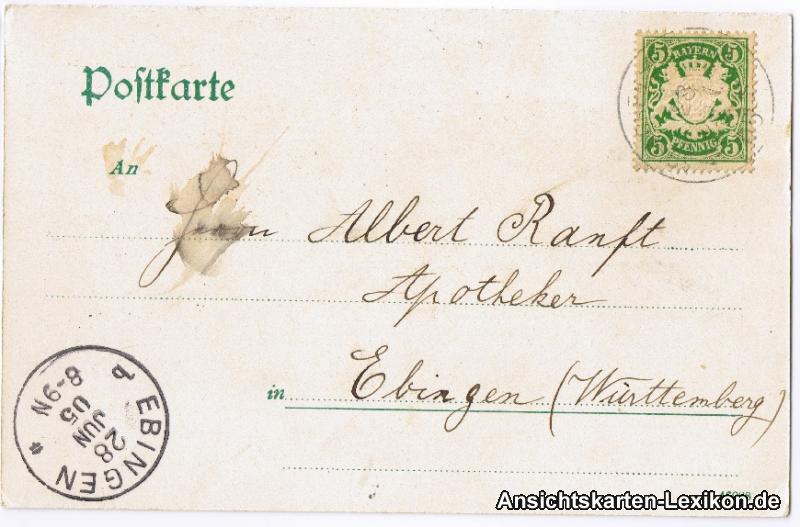 Postkarte
5 BAYERN 5
5 PFENNIG 5
An
Herrn Albert Ranft
Apotheker
in Ebingen (Württemberg)
EBINGEN
28
JUN
05
8-9N
Ansichtskarten-Lexikon.de